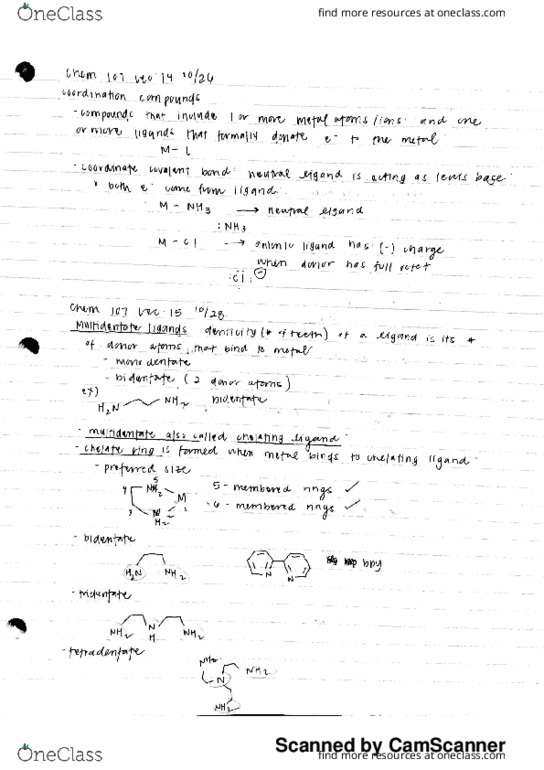 OneClass
find more resources at oneclass.com
Chem 107 lec 14 10/26
coordination compounds
- compounds that include 1 or more metal atoms/ions and one
or more ligands that formally donate e- to the metal
M-L
- coordinate covalent bond: neutral ligand is acting as lewis base
* both e- come from ligand
M - NH3 → neutral ligand
:NH3
M - Cl → anionic ligand has (-) charge
when donor has full octet
:Cl: -
Chem 107 lec 15 10/28
Multidentate ligands denticity (# of teeth) of a ligand is its #
of donor atoms that bind to metal
- monodentate
- bidentate (2 donor atoms)
ex)
H2N NH2 bidentate
- multidentate also called chelating ligand
- chelate ring is formed when metal binds to chelating ligand
- preferred size
5
4 NH2 5-membered rings ✓
M
1
3 NH2 6-membered rings ✓
- bidentate
H2N NH2 N N bpy
- tridentate
NH2 N H NH2
- tetradentate
NH2 NH2
N
NH2
Scanned by CamScanner
OneClass
find more resources at oneclass.com